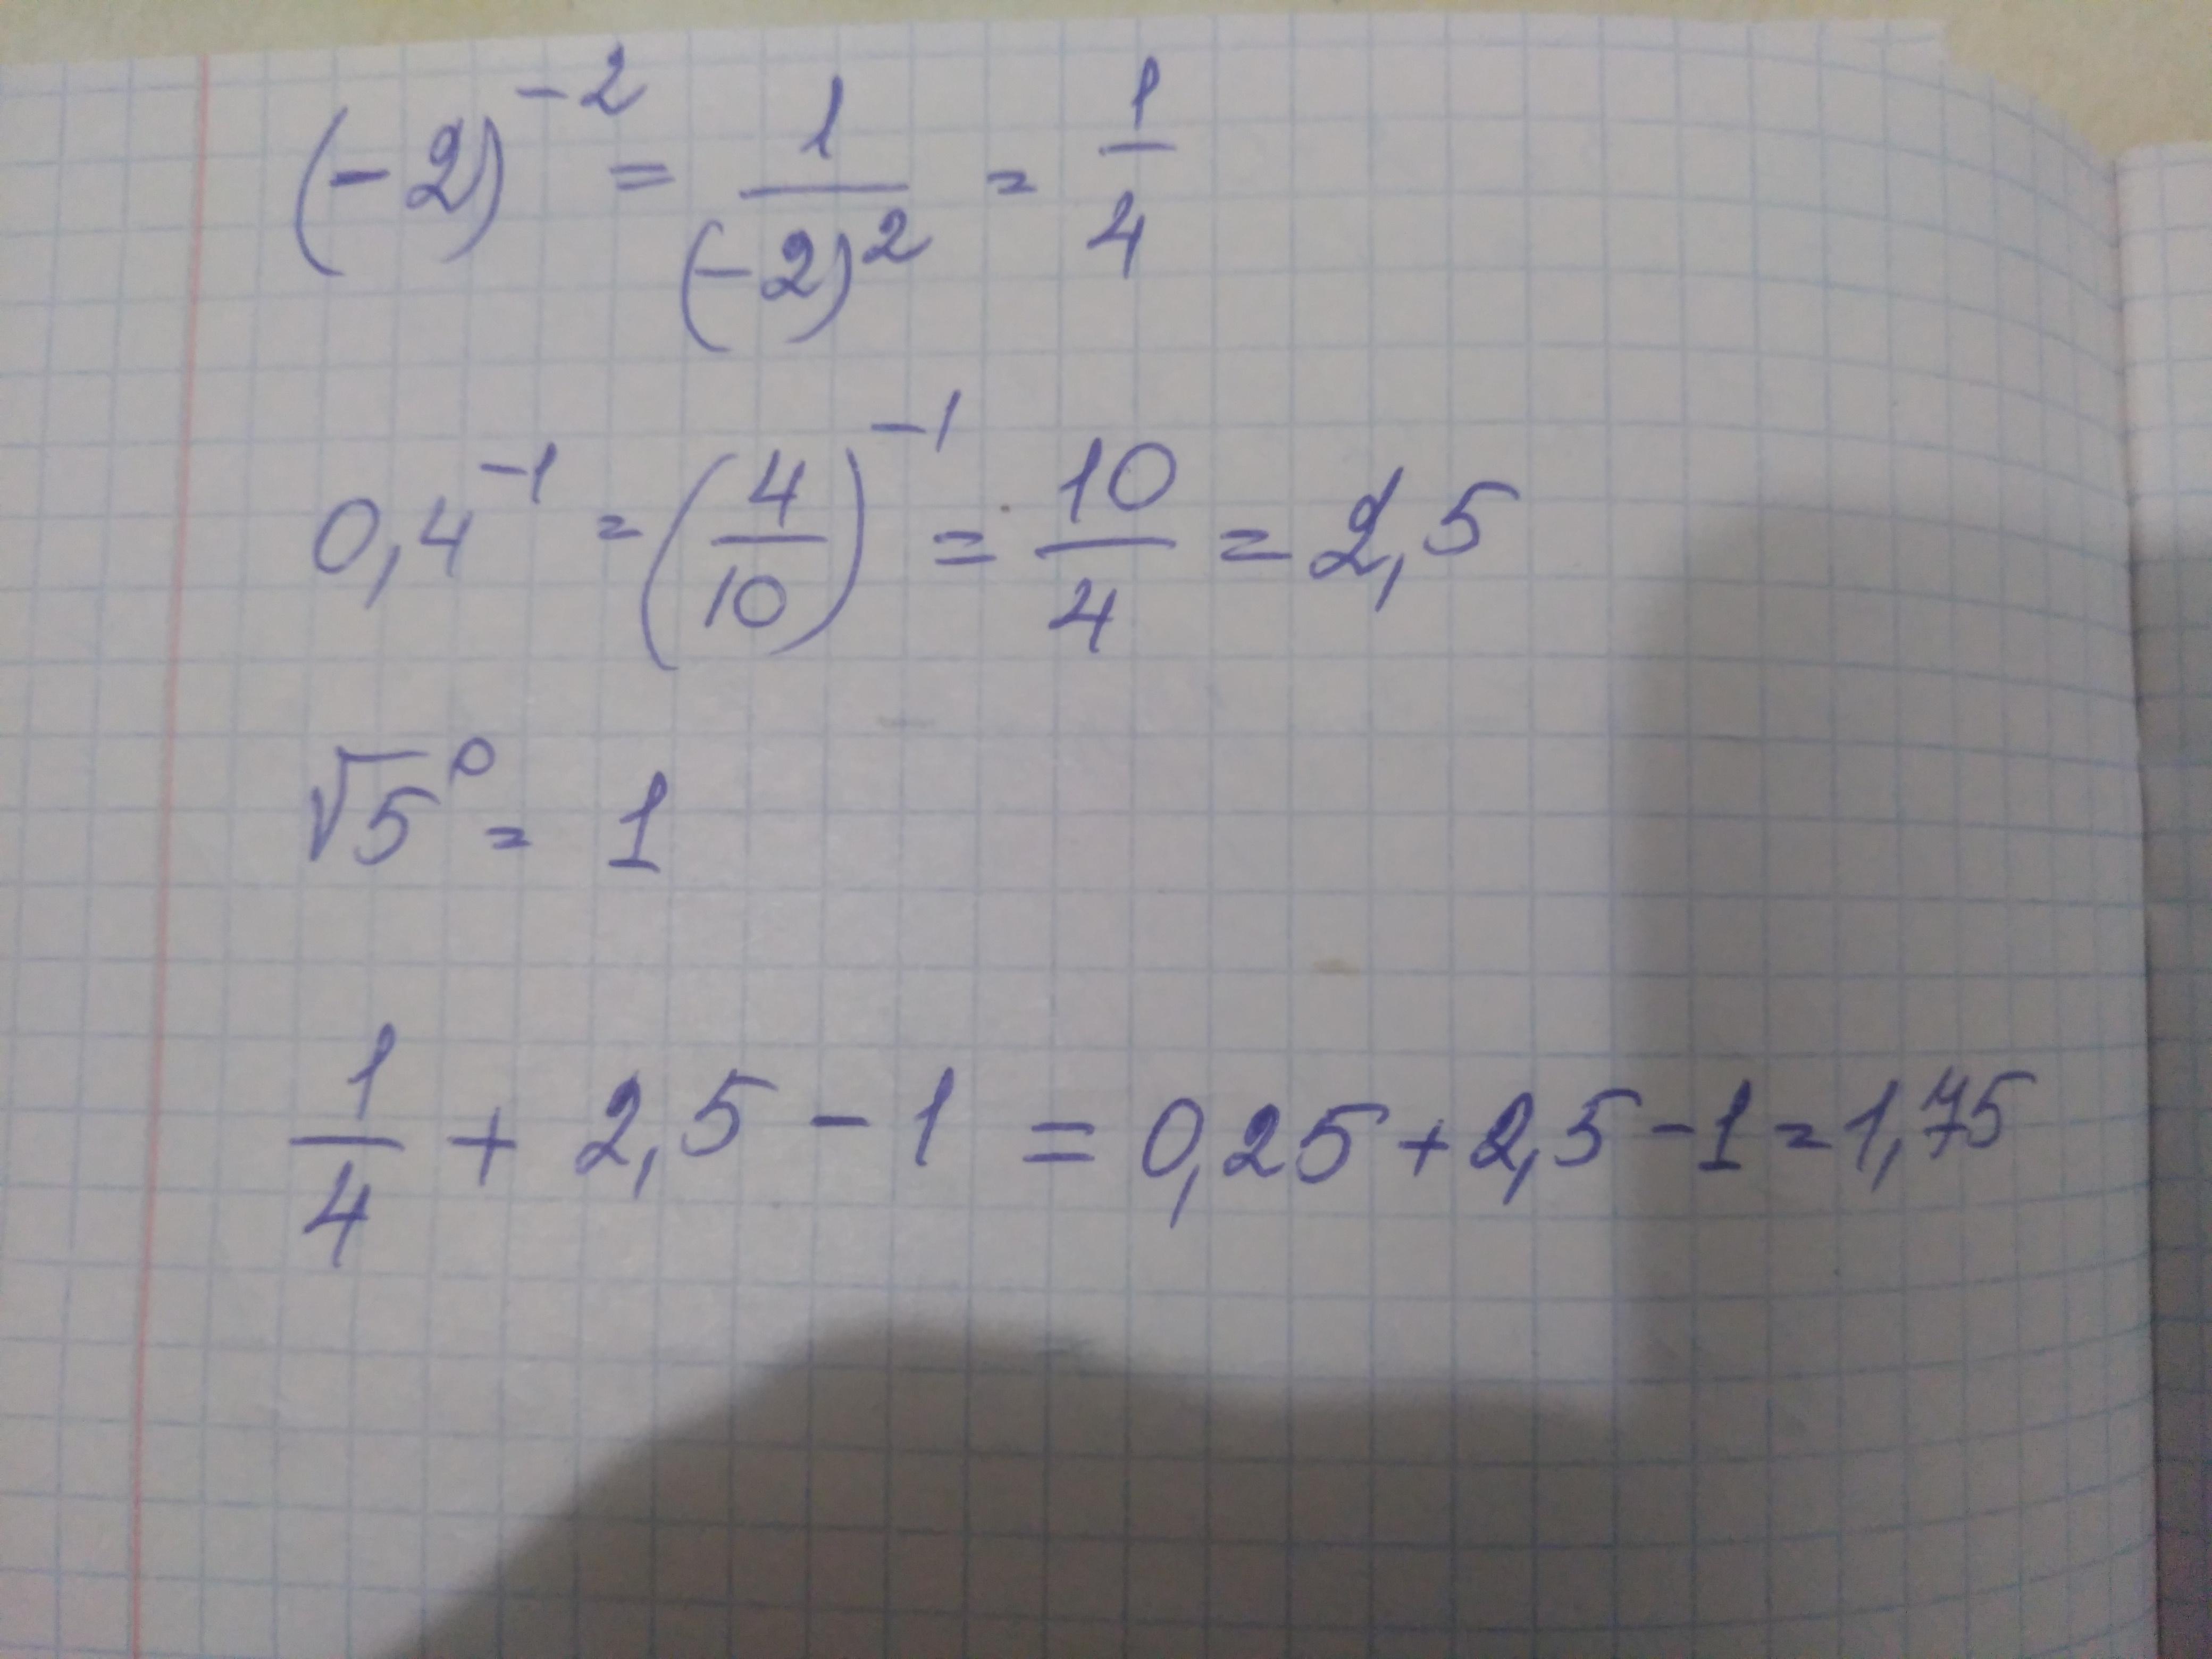 (-2)^-2 = 1/(-2)^2 = 1/4
0,4^-1 = (4/10)^-1 = 10/4 = 2,5
√5^0 = 1
1/4 + 2,5 - 1 = 0,25 + 2,5 - 1 = 1,75